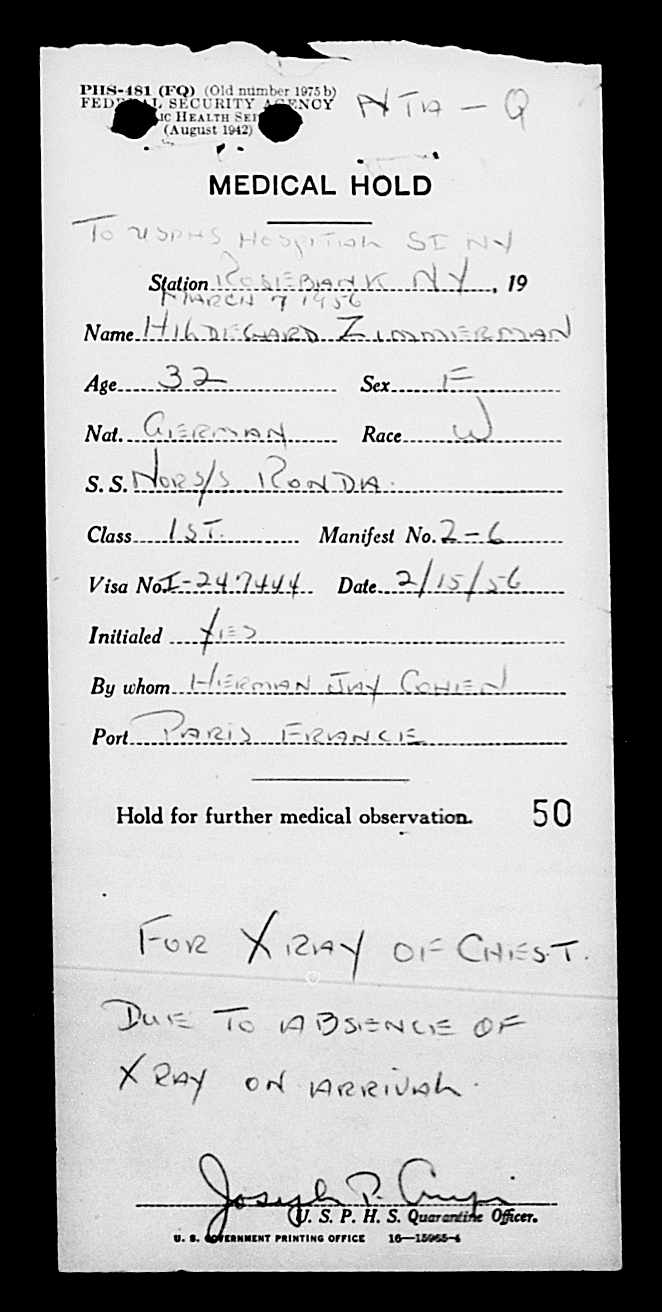 PHS-481 (FQ) (Old number 1975 b)
FEDERAL SECURITY AGENCY
PUBLIC HEALTH SERVICE
(August 1942)
NTA - Q
MEDICAL HOLD
TO USPHS HOSPITAL SI NY
Station ROSEBANK NY, 19
MARCH 7 1956
Name HILDEGARD ZIMMERMAN
Age 32 Sex F
Nat. GERMAN Race W
S. S. NOR S/S RONDA.
Class 1ST. Manifest No. 2-6
Visa No. I-247444 Date 2/15/56
Initialed YES
By whom HERMAN JAY COHEN
Port PARIS FRANCE
Hold for further medical observation. 50
FOR X RAY OF CHEST.
DUE TO ABSENCE OF
X RAY ON ARRIVAL.
Joseph P.
U. S. P. H. S. Quarantine Officer.
U. S. GOVERNMENT PRINTING OFFICE 16—15965-4